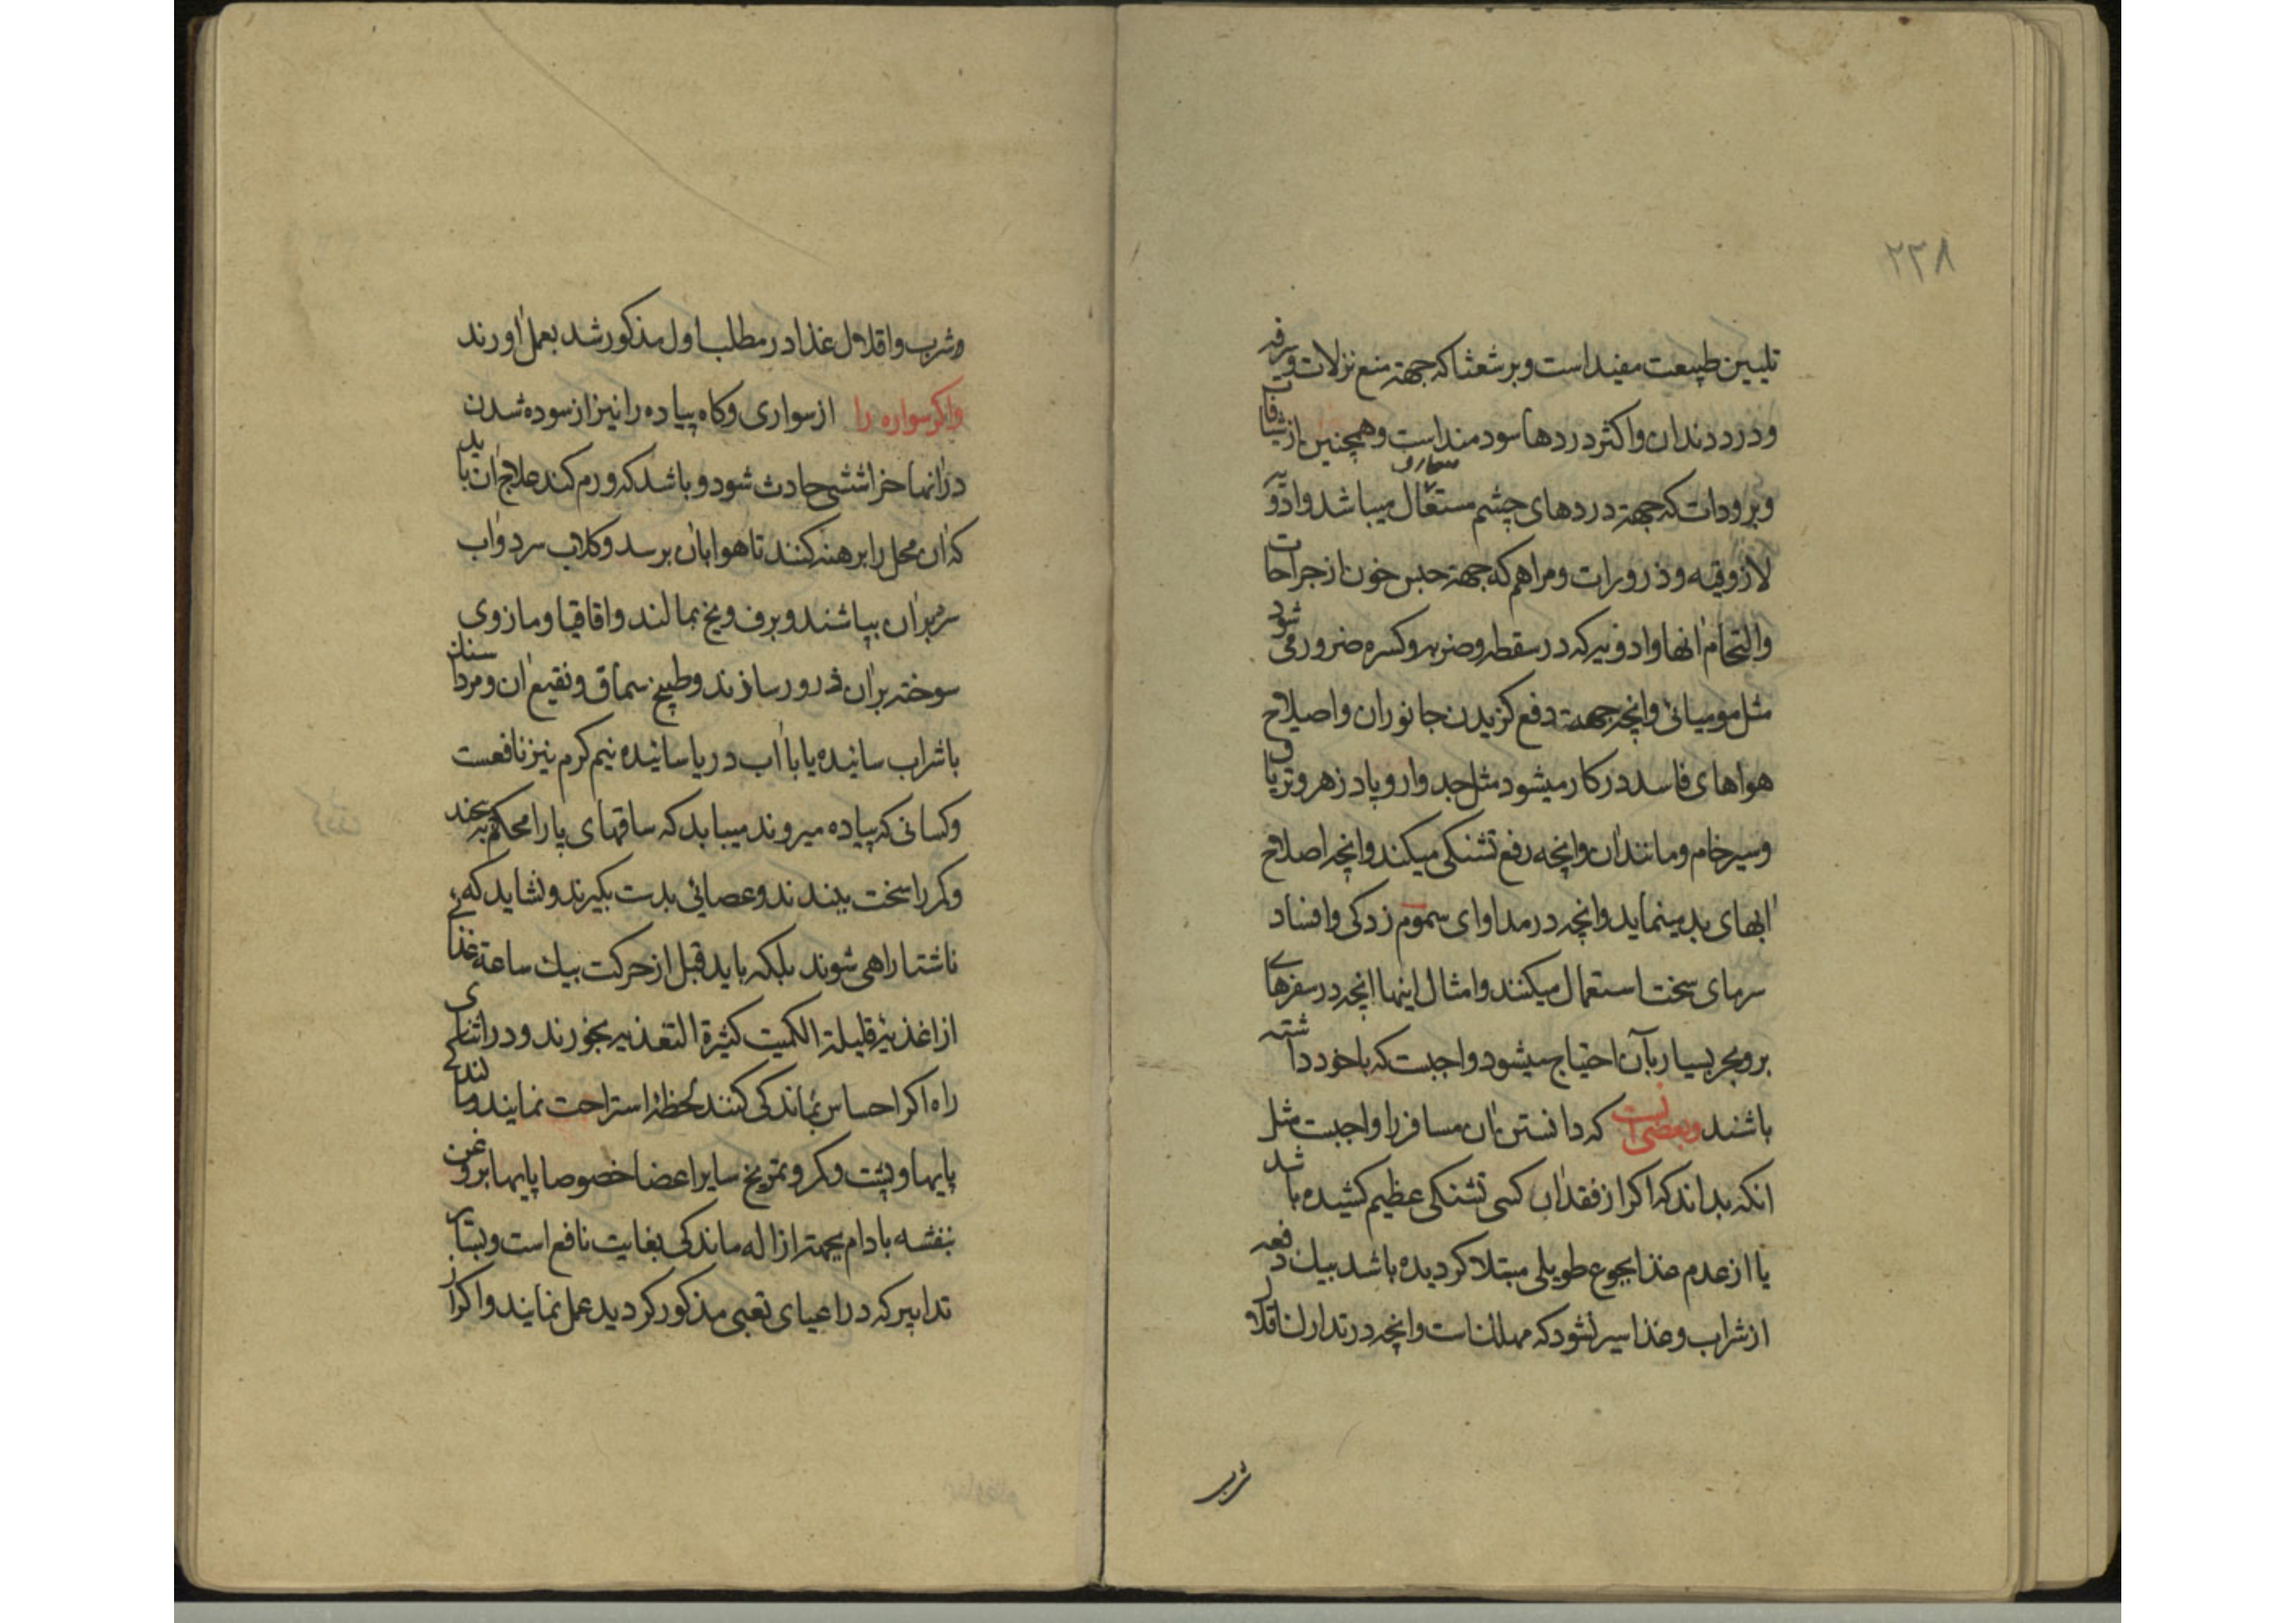 ۲۳۸
تلیین طبیعت مفید است و برشعثا که جهة منع نزلات و سرفه
و درد دندان و اکثر دردها سودمند است و همچنین از شیافات
و برودات که جهة دردهای چشم مستعمل میباشد و ادویه
لازوقیه و ذرورات و مراهم که جهة حبس خون از جراحات
و التحام انها و ادویه که در سقطه و ضربه و کسره ضرور می شود
مثل مومیائی و انچه جهت دفع کزیدن جانوران و اصلاح
هواهای فاسد در کار میشود مثل جدوار و پادزهر و تریاق
و سیر خام و مانند ان و انچه رفع تشنکی میکند و انچه اصلاح
ابهای بد مینماید و انچه در مداوای سموم زدکی و افساد
سرمای سخت استعمال میکنند و امثال اینها انچه در سفرهای
بر و بحر بسیار بآن احتیاج میشود واجبست که باخود داشته
باشند و بعضی انست که دانستن ان مسافر را واجبست مثل
انکه بداند که اکر از فقدان کسی تشنکی عظیم کشیده باشد
یا از عدم غذا بجوع طویلی مبتلا کردیده باشد بیک دفعه
از شراب و غذا سیر نشود که مهلک است و انچه در تدارک اقلال
شرب
و شرب و اقلال غذا در مطلب اول مذکور شد بعمل اورند
واکر سواره را از سواری و کاه پیاده را نیز از سوده شدن
رانها خراششی حادث شود و باشد که ورم کند علاج ان باید
که ان محل را برهنه کنند تا هوا بان برسد و کلاب سرد و اب
سرد بران بپاشند و برف و یخ بمالند و اقاقیا و مازوی
سوخته بران ذرور سازند و طبیخ سماق و نقیع ان و مرداسنک
با شراب سائیده یا با اب دریا سائیده نیم کرم نیز نافعست
و کسانی که پیاده میروند میباید که ساقهای پا را محکم به پیچند
و کمر را سخت ببندند و عصائی بدست بکیرند و نشاید که
ناشتا راهی شوند بلکه باید قبل از حرکت بیک ساعة غذائی
از اغذیه قلیلة الکمیت کثیرة التغذیه بخورند و در اثنای
راه اکر احساس بماندکی کنند لحظه استراحت نمایند و مالند
پایها و پشت و کمر و تمریخ سایر اعضا خصوصا پایها بروغن
بنفشه بادام بجهة ازاله ماندکی بغایت نافع است و بسایر
تدابیر که در اعیای تعبی مذکور کردید عمل نمایند و اکر از